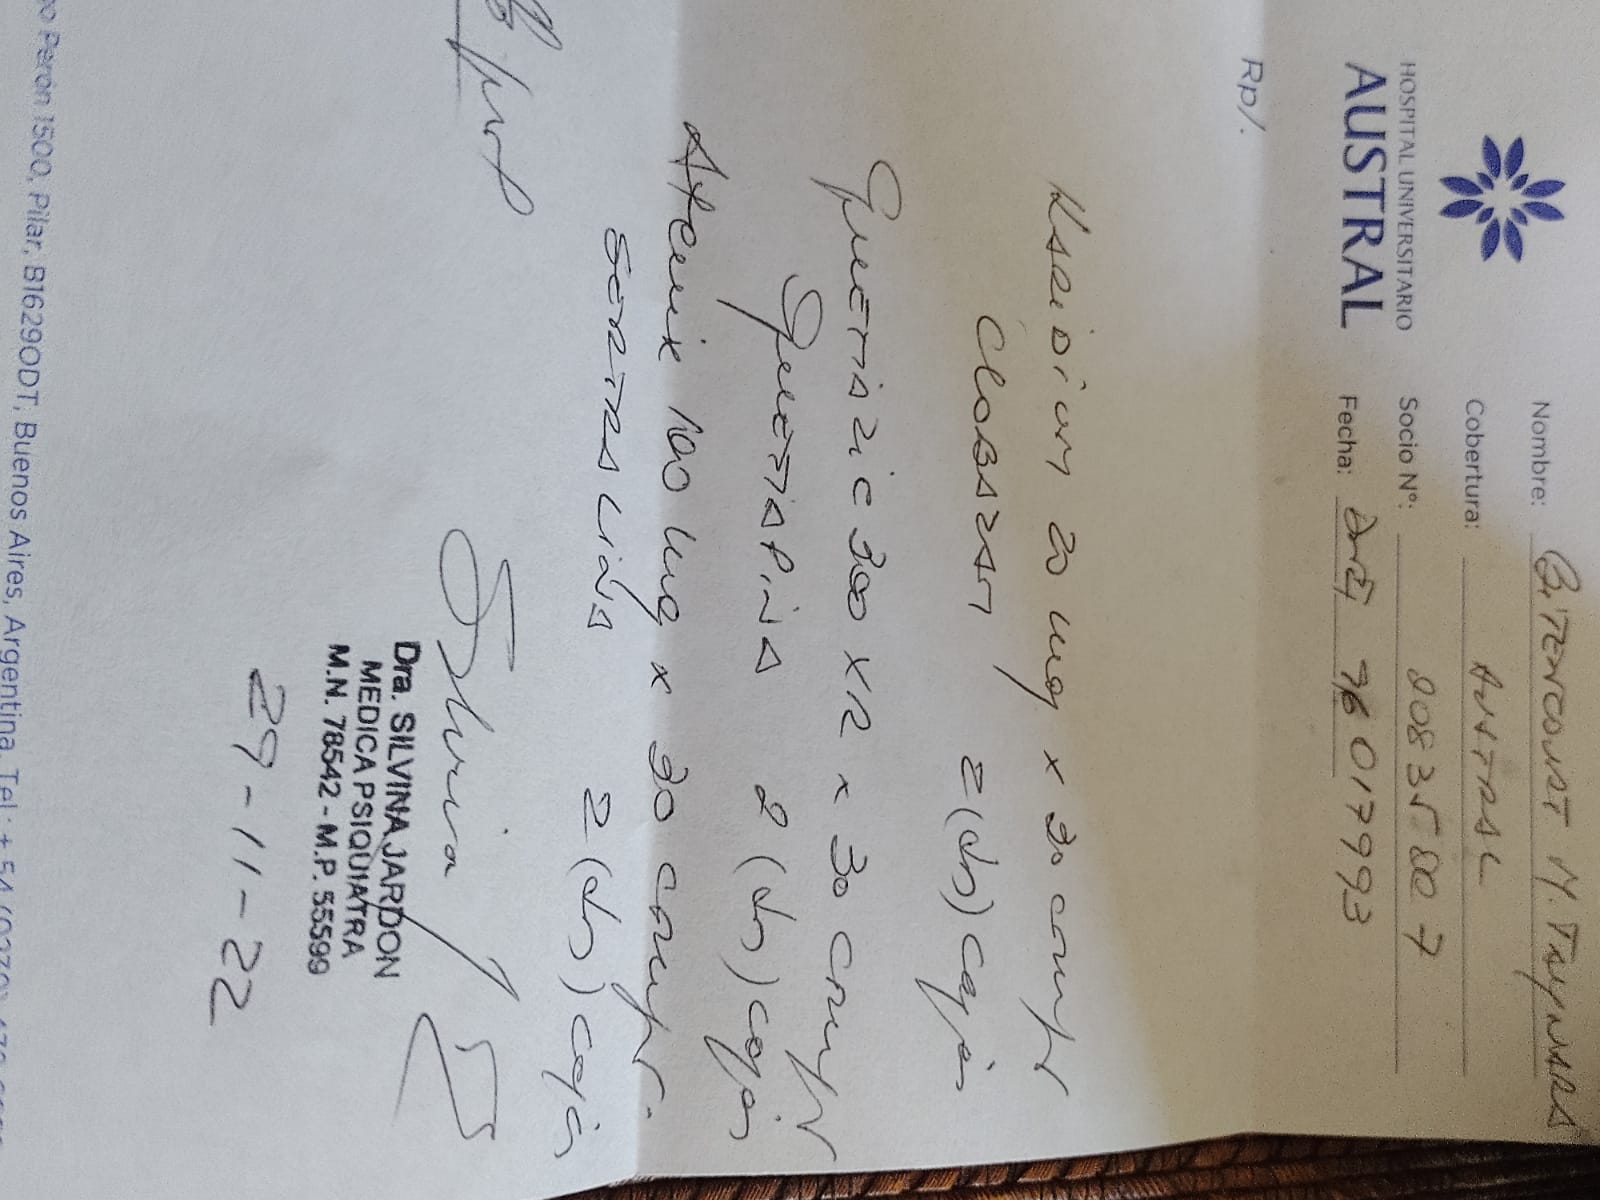 HOSPITAL UNIVERSITARIO
AUSTRAL
Nombre: BITENCOURT M. TAYNARA
Cobertura: AUSTRAL
Socio Nº: 20835800 7
Fecha: DNI 96017993
Rp/.
KARIDIUM 20 mg x 30 compr
CLOBAZAM 2 (dos) cajas
QUETIAZIC 300 XR x 30 compr
QUETIAPINA 2 (dos) cajas
Atenix 100 mg x 30 compr.
SERTRALINA 2 (dos) cajas
Dra. SILVINA JARDON
MEDICA PSIQUIATRA
M.N. 78542 - M.P. 55599
29-11-22
Perón 1500, Pilar, B1629ODT, Buenos Aires, Argentina. Tel.: + 54